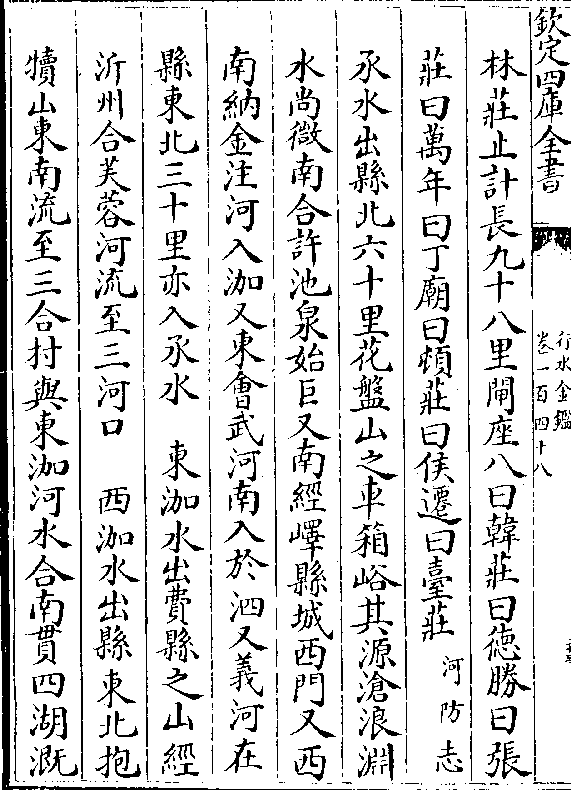 欽定四庫全書
行水金鑑
卷一百四十八
林莊止計長九十八里閘座八曰韓莊曰德勝曰張
莊曰萬年曰丁廟曰頓莊曰侯遷曰臺莊 河防志
氶水出縣北六十里花盤山之車箱峪其源滄浪淵
水尚微南合許池泉始巨又南經嶧縣城西門又西
南納金注河入泇又東會武河南入於泗又義河在
縣東北三十里亦入氶水 東泇水出費縣之山經
沂州合芙蓉河流至三河口 西泇水出縣東北抱
犢山東南流至三合村與東泇河水合南貫四湖溉